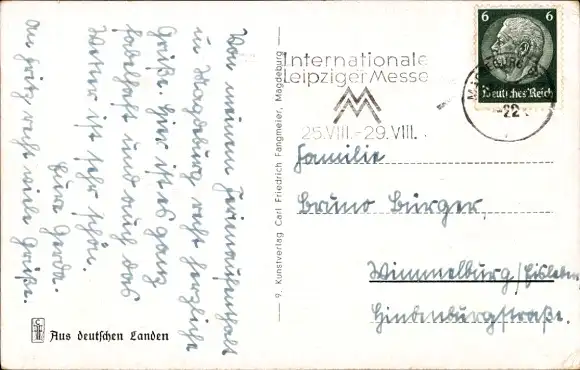 Von meinem Ferienaufenthalt
in Magdeburg recht herzliche
Grüße. Hier ist es ganz
fabelhaft und auch das
Wetter ist sehr schön.
Eure Gerda.
An Fritz recht viele Grüße.
Aus deutschen Landen
9. Kunstverlag Carl Friedrich Fangmeier, Magdeburg
Internationale
Leipziger Messe
25.VIII.-29.VIII.
6 6
Deutsches Reich
-22
Familie
Bruno Burger,
Wimmelburg/Eisleben
Hindenburgstraße.